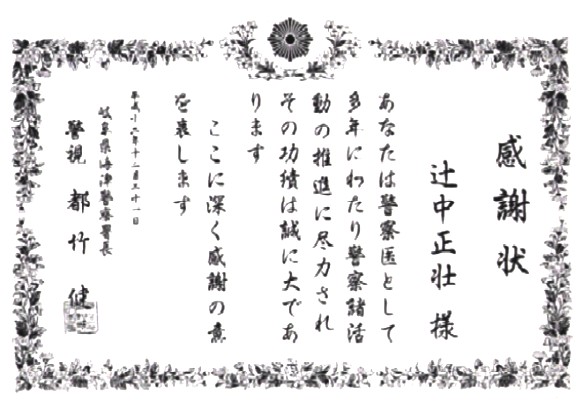 感謝状
辻中正壮 様
あなたは警察医として
多年にわたり警察諸活
動の推進に尽力され
その功績は誠に大であ
ります
ここに深く感謝の意
を表します
平成十六年十二月三十一日
岐阜県海津警察署長
警視 都竹 健